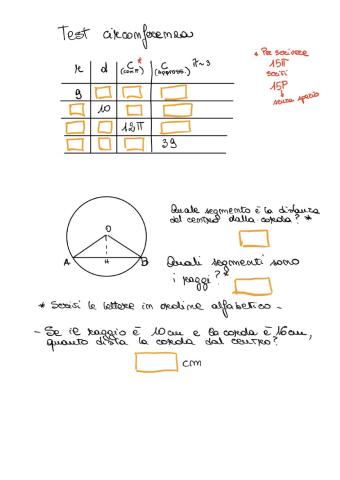 Test circonferenza
r d C (con π) * C (appross.) π~3
9
10
12π
39
* Per scrivere
15π
scrivi
15P
senza spazio
Quale segmento è la distanza
del centro dalla corda? *
O
A H B
Quali segmenti sono
i raggi? *
* Scrivi le lettere in ordine alfabetico.
- Se il raggio è 10cm e la corda è 16cm,
quanto dista la corda dal centro?
cm